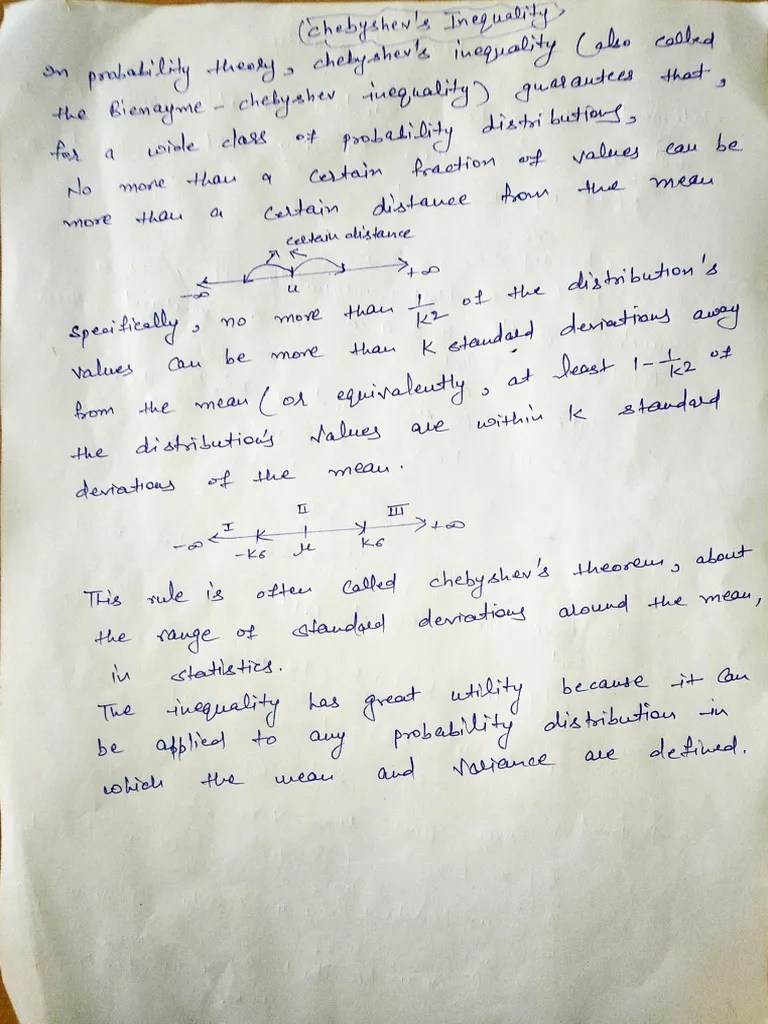 (Chebyshev's Inequality)
In probability theory, chebyshev's inequality (also called
the Bienayme - chebyshev inequality) guarantees that,
for a wide class of probability distributions,
No more than a certain fraction of values can be
more than a certain distance from the mean
certain distance
-∞ μ +∞
Specifically, no more than 1/K2 of the distribution's
values can be more than K standard deviations away
from the mean (or equivalently, at least 1-1/K2 of
the distribution's values are within K standard
deviations of the mean.
I II III
-∞ -Kσ μ Kσ +∞
This rule is often called chebyshev's theorem, about
the range of standard deviations around the mean,
in statistics.
The inequality has great utility because it can
be applied to any probability distribution in
which the mean and variance are defined.